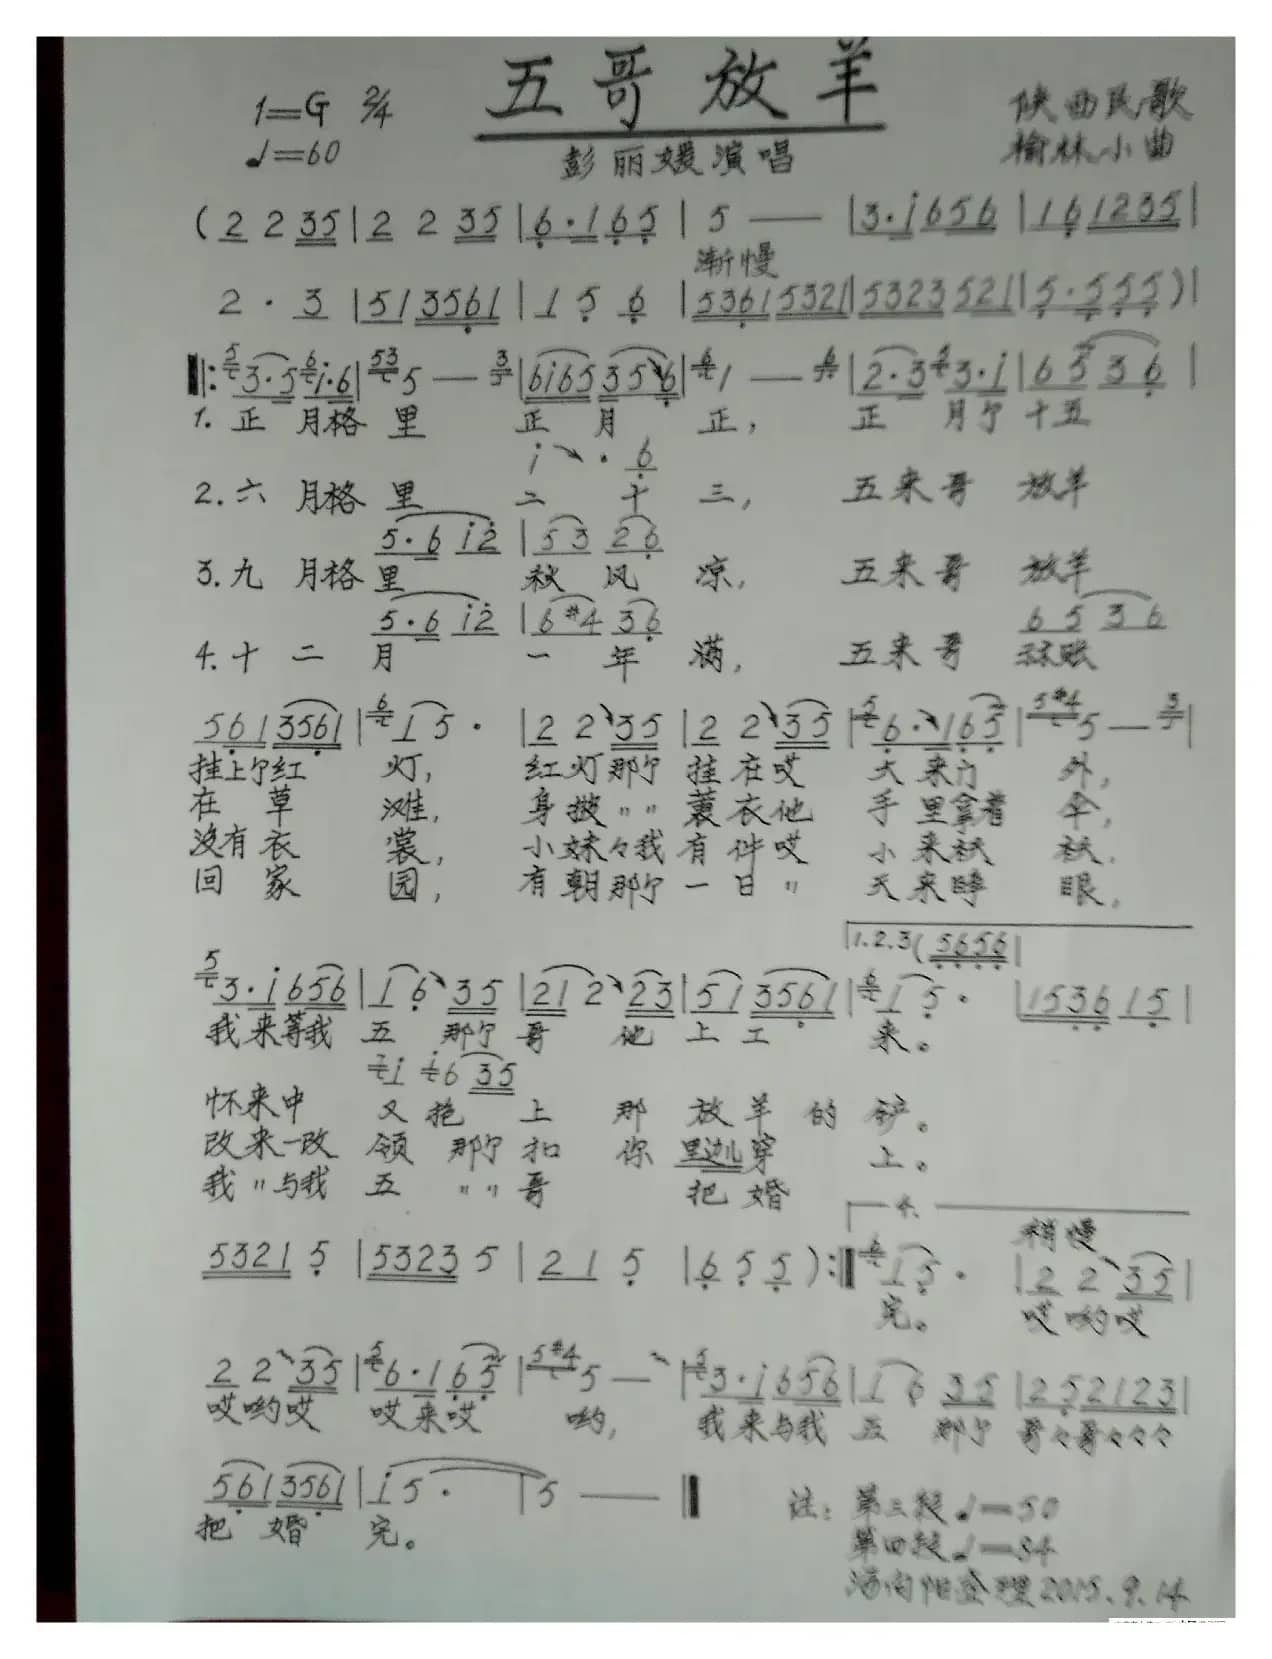 五哥放羊
1=G 2/4
♩=60
彭丽媛演唱
陕西民歌
榆林小曲
(2 2 35|2 2 35|6·165|5 ——|3·i656|161235|
渐慢
2·3|513561|1 5 6|53615321|5323521|5·555)|
‖:5 3·5 6 i·6|53 5 — 3|6i65356|6 1 — 6|2·3 5 3·i|65 36|
1.正 月格 里 正 月 正, 正 月个 十五
i · 6
2.六 月格 里 二 十 三, 五来哥 放羊
5·6 i2|53 26
3.九 月格里 秋 风 凉, 五来哥 放羊
5·6 i2|6#4 36 65 36
4.十 二 月 一 年 满, 五来哥
5613561|6 1 5·|2 2 35|2 2 35|5 6·165|5#4 5 — 3|
挂上个红 灯, 红灯那个 挂在哎 大来门 外,
在 草 滩, 身披〃〃蓑衣他 手里拿着 伞,
没有衣 裳, 小妹々我有件哎 小来袄 袄,
回 家 园, 有朝那个一日〃 天来睁 眼,
1.2.3(5656|
5 3·i656|1 6 35|21 2 23|513561|6 1 5·|1536 15|
我来等我 五 那个 哥 他 上工 来。
i 6 35
怀来中 又抱 上 那 放羊的 铲。
改来一改 领 那个扣 你 里边儿穿 上。
我〃与我 五 〃〃哥 把婚
4.
稍慢
5321 5|5323 5|21 5|6 5 5):‖6 1 5·|2 2 35|
完。 哎哟哎
2 2 35|5 6·165|5#4 5 —|5 3·i656|1 6 35|252123|
哎哟哎 哎来哎 哟, 我来与我 五 那个 哥々哥々々々
5613561|i5·|5 ——‖
把 婚 完。
注: 第三段♩=50
第四段♩=84
整理2015.9.14